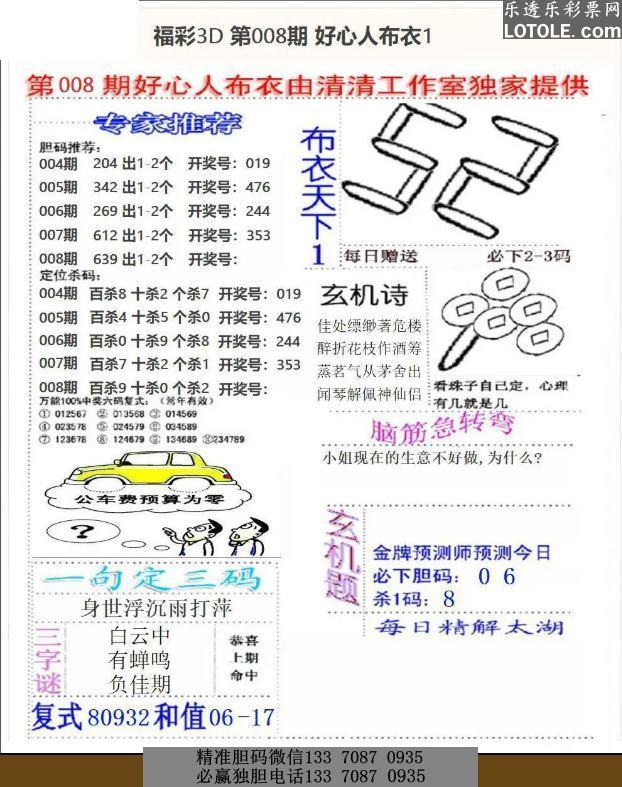 乐透乐彩票网
LOTOLE.COM
福彩3D 第008期 好心人布衣1
第008 期好心人布衣由清清工作室独家提供
专家推荐
胆码推荐:
004期 204 出1-2个 开奖号: 019
005期 342 出1-2个 开奖号: 476
006期 269 出1-2个 开奖号: 244
007期 612 出1-2个 开奖号: 353
008期 639 出1-2个 开奖号:
定位杀码:
004期 百杀8 十杀2 个杀7 开奖号: 019
005期 百杀4 十杀5 个杀0 开奖号: 476
006期 百杀0 十杀9 个杀8 开奖号: 244
007期 百杀7 十杀2 个杀1 开奖号: 353
008期 百杀9 十杀0 个杀2 开奖号:
万能100%中奖六码复式: (常年有效)
① 012567 ② 013568 ③ 014569
④ 023578 ⑤ 024579 ⑥ 034589
⑦ 123678 ⑧ 124679 ⑨ 134689 ⑩234789
公车费预算为零
?
一句定三码
身世浮沉雨打萍
三字谜
白云中
有蝉鸣
负佳期
恭喜
上期
命中
复式80932和值06-17
布衣天下1
52
每日赠送 必下2-3码
玄机诗
佳处缥缈著危楼
醉折花枝作酒筹
蒸茗气从茅舍出
闻琴解佩神仙侣
看珠子自己定，心理
有几就是几
脑筋急转弯
小姐现在的生意不好做,为什么?
玄机题
金牌预测师预测今日
必下胆码: 0 6
杀1码: 8
每日精解太湖
精准胆码微信133 7087 0935
必赢独胆电话133 7087 0935